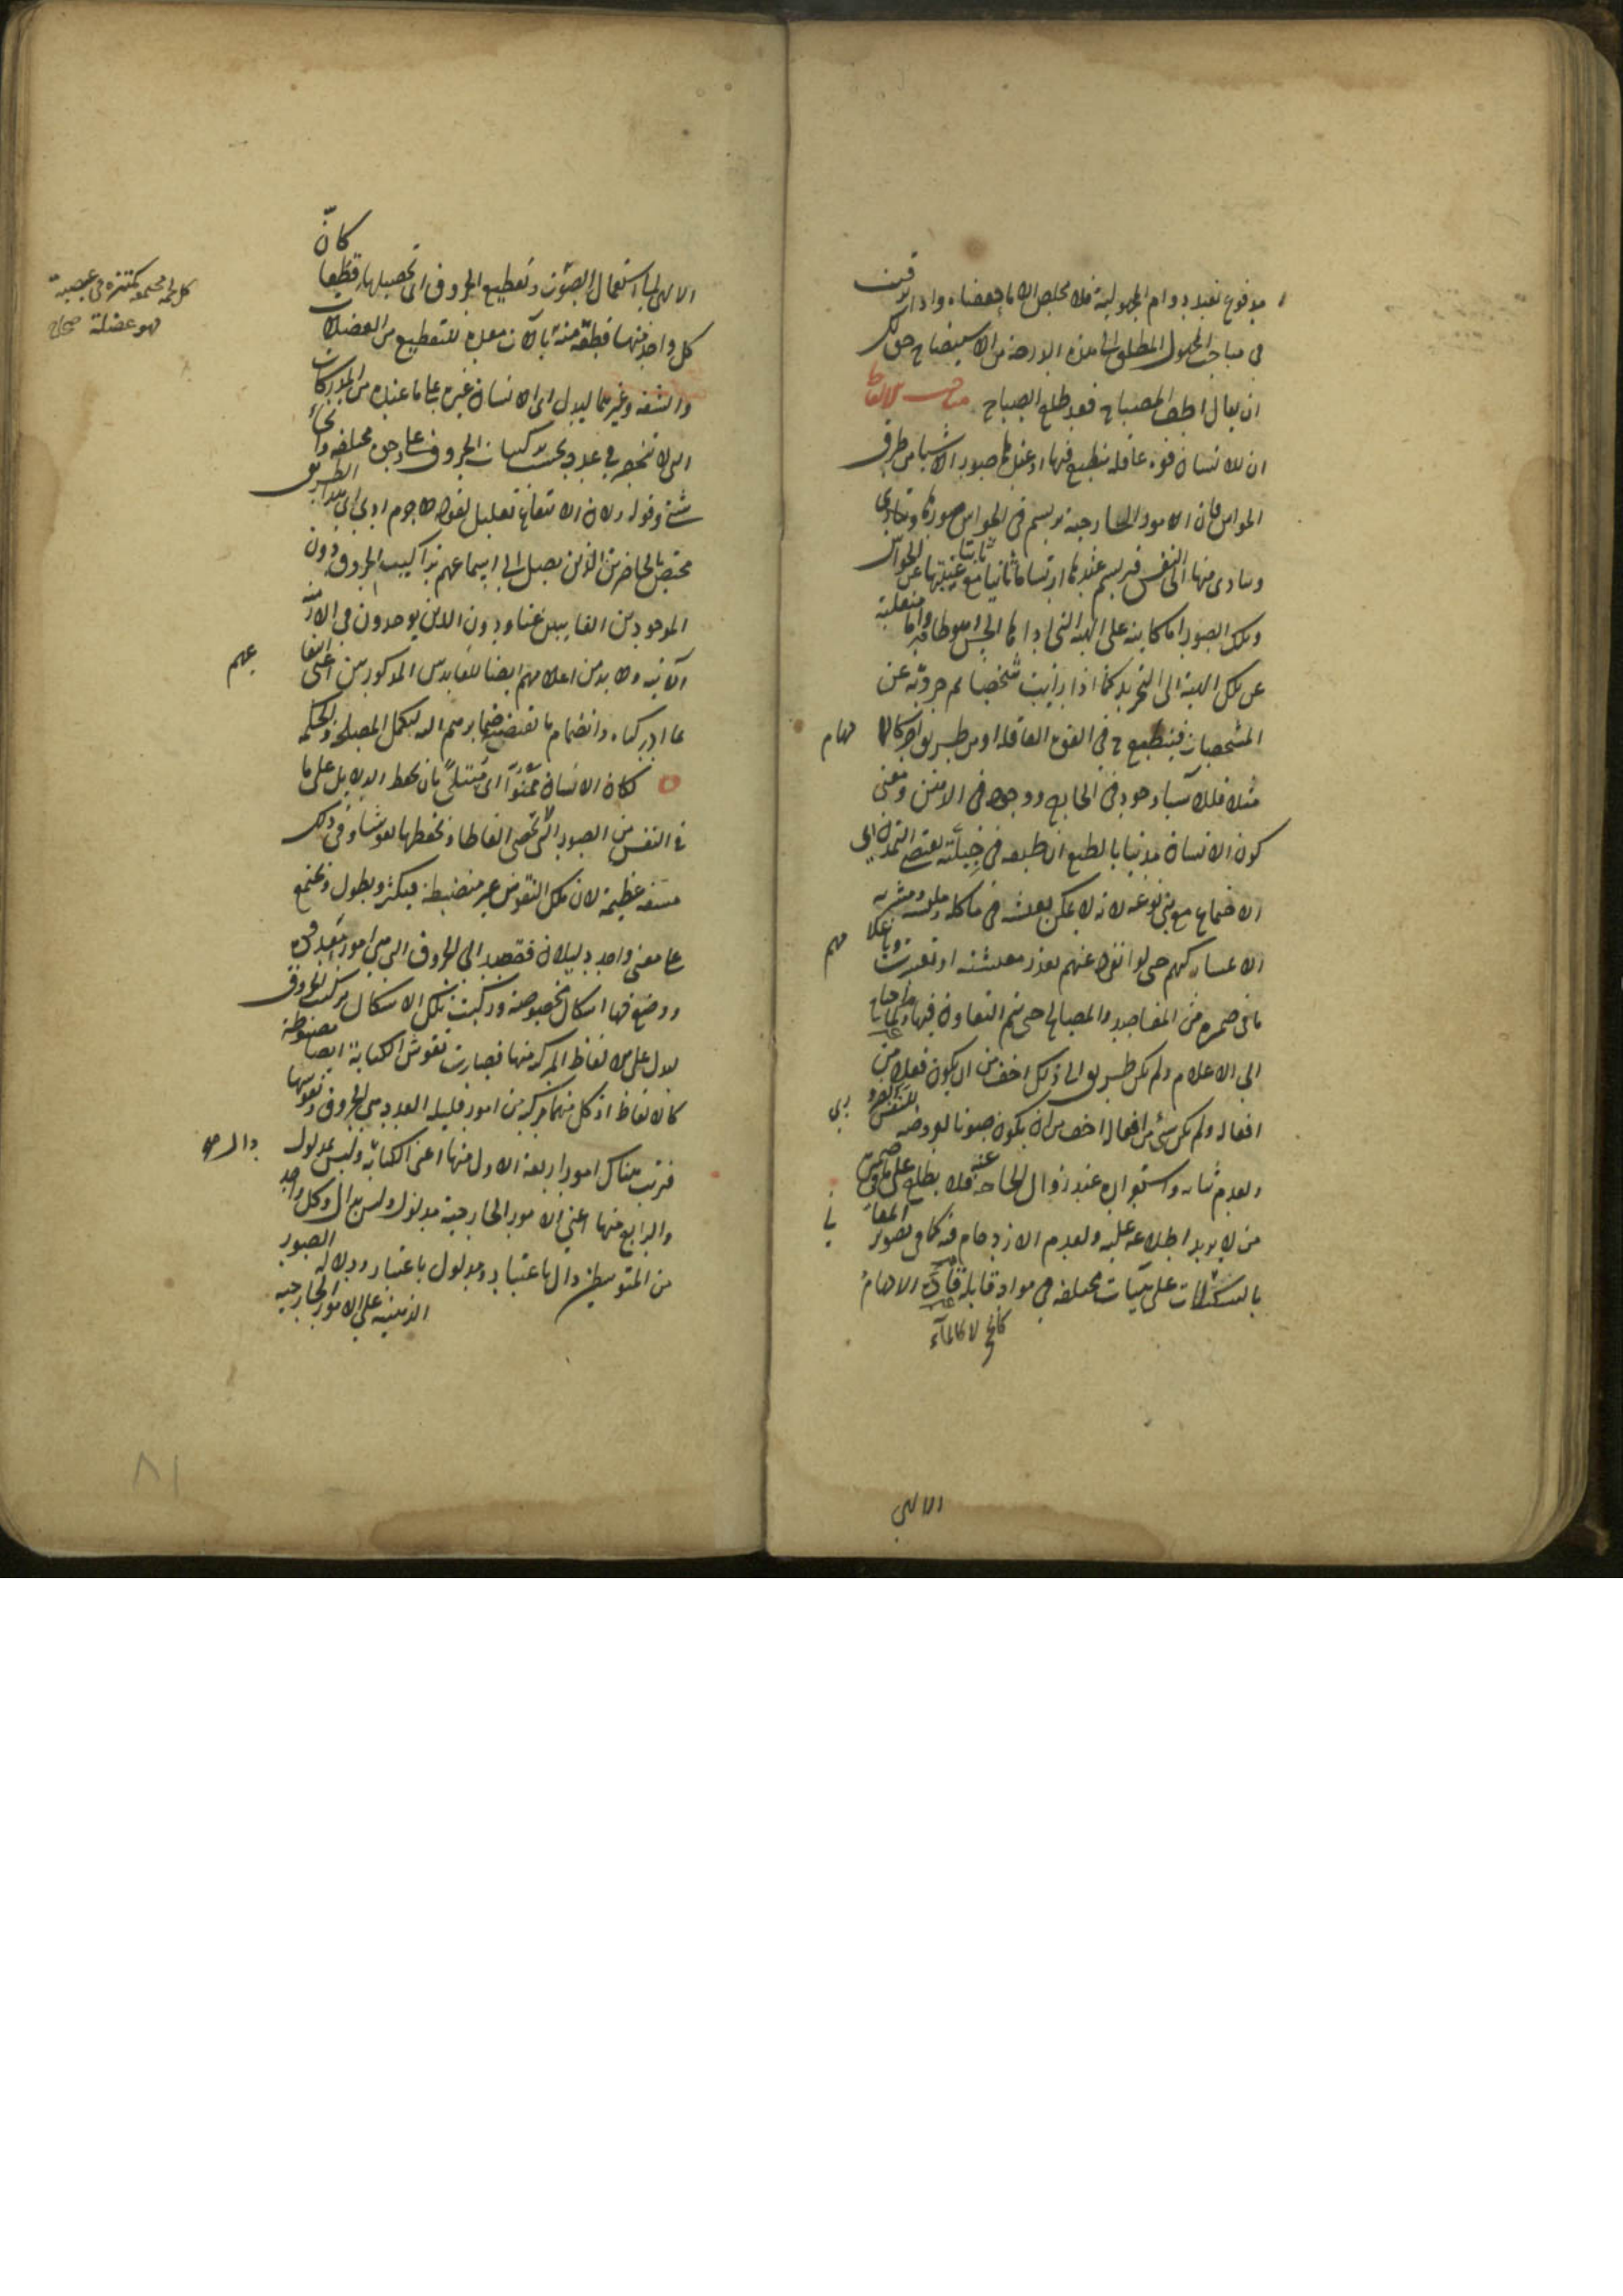 مدفوع بقيد دوام المجهولية فلا مخلص الا بما حققناه واذا ارتقيت
في مباحث المجهول المطلق الى هذه الدرجة من الاستيضاح حق لك
ان يقال اطف المصباح فقد طلع الصباح مباحث الالفاظ
ان للانسان قوة عاقلة ينطبع فيها صور الاشياء من طرق
الحواس فان الامور الخارجية يرتسم في الحواس صورها
ويتادى منها الى النفس فيرتسم عندها ارتساما ثانيا ثابتا مع غيبتها عن الحواس
وتلك الصور اما كاينة على الهيئة التي اداها الحس اليها واما منقلبة
عن تلك الهيئة الى التجريد كما اذا رايت شخصا ثم جردته عن
المشخصات فينطبع ح في القوة العاقلة او من طريق اخر كالالهام
مثلا فللاشياء وجود في الخارج ووجود في الذهن ومعنى
كون الانسان مدنيا بالطبع ان طبعه في جبلته يقتضي التمدن اي
الاجتماع مع بني نوعه لانه لا يمكن تعيشه في ماكله وملبسه ومشربه
الا بمشاركتهم حتى لو انفرد عنهم تعذر معيشته او تعسرت وباعلامهم
ما في ضميره من المقاصد والمصالح حتى يتم التعاون فيها ولما احتاج
الى الاعلام ولم يكن طريق الى ذلك اخف من ان يكون فعلا من
افعاله ولم يكن شيء من افعاله اخف من ان يكون صوتا لعروضه للتنفس الضروري
ولعدم ثباته واستقراره عند زوال الحاجة عنه فلا يطلع على ما في ضميره
من لا يريد اطلاعه عليه ولعدم الازدحام فيه كما في تصوير المعاني
بالتشكلات على هيئات مختلفة في مواد قابلة قارة الالهام
لا كالماء
الالهي
كانّ
الالهي لها استعمال الصوت وتقطيع الحروف اي تحصيلها قطعا
كل واحد منها قطعة منه بآلات معدة للتقطيع من العضلات
والشفة وغيرهما ليدل اي الانسان غيره على ما عنده من المدركات
التي لا تنحصر في عدد بحسب تركيبات الحروف على وجوه مختلفة وانحاء
شتى وقوله ولان الانتفاع تعليل لقوله لا جرم ادى اي هذا الطريق
مختص بالحاضرين الذين يصل الى اسماعهم تراكيب الحروف دون
الموجودين الغايبين عنا ودون الذين يوجدون في الازمنة
الآتية ولا بد من اعلامهم ايضا للفايدتين المذكورتين اعني انتفاعهم
بما ادركناه وانضمام ما تقتضيه ضمايرهم اليه لتكمل المصلحة والحكمة
لكان الانسان ممنوّا اى مبتلىً بان يحفظ الدلايل على ما
في النفس من الصور التي تخص الفاظا وتحفظها نقوشا وفي ذلك
مشقة عظيمة لان تلك النقوش غير منضبطة فيكثر ويطول ويجتمع
على معنى واحد دليلان فقصد الى الحروف التي هي امور معدودة
ووضع فيها اشكال مخصوصة وركبت تلك الاشكال تركيب الحروف
لتدل على الالفاظ المركبة منها فصارت نقوش الكتابة ايضا مضبوطة
كالالفاظ اذ كل منهما مركبة من امور قليلة العدد هي الحروف ونقوشها
فترتب هناك امور اربعة الاول منها اعني الكتابة دال وليس بمدلول
والرابع منها اعني الامور الخارجية مدلول وليس بدال وكل واحد
من المتوسطين دال باعتبار ومدلول باعتبار ودلالة الصور
الذهنية على الامور الخارجية
كل لحمة مجتمعة مكتنزة في عصبة
فهو عضلة صحاح